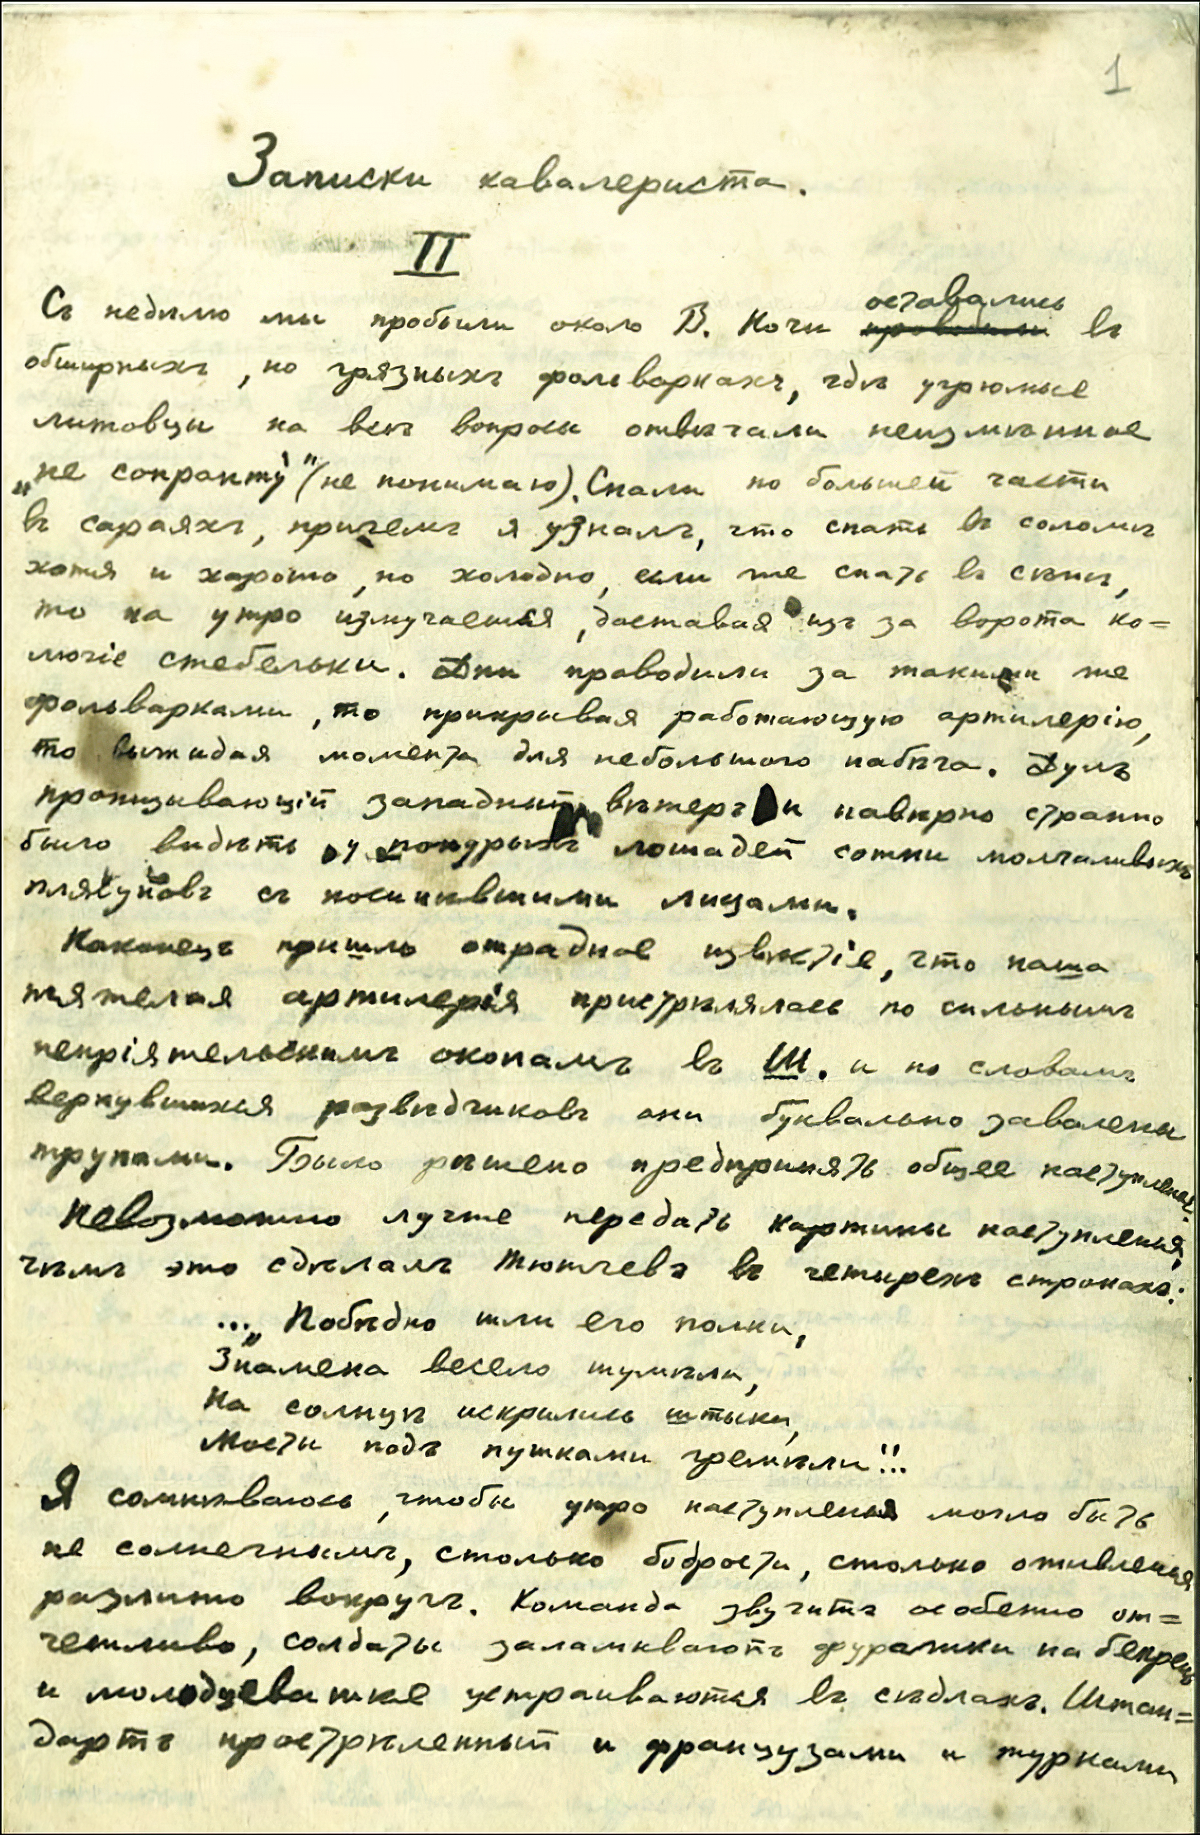 1
Записки кавалериста.
II
Съ недѣлю мы пробыли около В. Ночи оставались въ
обширныхъ, но грязныхъ фольваркахъ, гдѣ угрюмые
литовцы на всѣ вопросы отвѣчали неизмѣнное
„не сопранту" (не понимаю). Спали по большей части
въ сараяхъ, причемъ я узналъ, что спать въ соломѣ
хотя и хорошо, но холодно, если же спать въ сѣнѣ,
то на утро измучаешься, доставая изъ за ворота ко=
лючіе стебельки. Дни проводили за такими же
фольварками, то прикрывая работающую артилерію,
то выжидая момента для небольшого набѣга. Дулъ
пронизывающій западный вѣтеръ и навѣрно странно
было видѣть у понурыхъ лошадей сотни молчаливыхъ
плясуновъ съ посинѣвшими лицами.
Наконецъ пришло отрадное извѣстіе, что наша
тяжелая артилерія пристрѣлялась по сильнымъ
непріятельскимъ окопамъ въ Ш. и по словамъ
вернувшихся развѣдчиковъ они буквально завалены
трупами. Было рѣшено предпринять общее наступленье.
Невозможно лучше передать картины наступленья,
чѣмъ это сдѣлалъ Тютчевъ въ четырехъ строкахъ:
... „Побѣдно шли его полки,
Знамена весело шумѣли,
На солнцѣ искрились штыки,
Мосты подъ пушками гремѣли"...
Я сомнѣваюсь, чтобы утро наступленья могло быть
не солнечнымъ, столько бодрости, столько оживленья
разлито вокругъ. Команда звучитъ особенно от=
четливо, солдаты заламываютъ фуражки на бекрень
и молодцеватѣе устраиваются въ сѣдлахъ. Штан=
дартъ прострѣленный и французами и турками